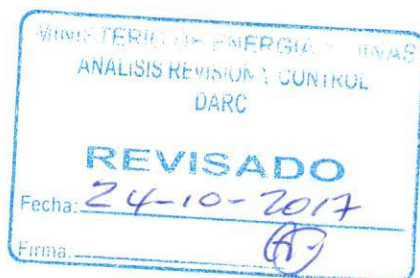 MINISTERIO DE ENERGIA Y MINAS
ANALISIS REVISION Y CONTROL
DARC
REVISADO
Fecha: 24-10-2017
Firma: